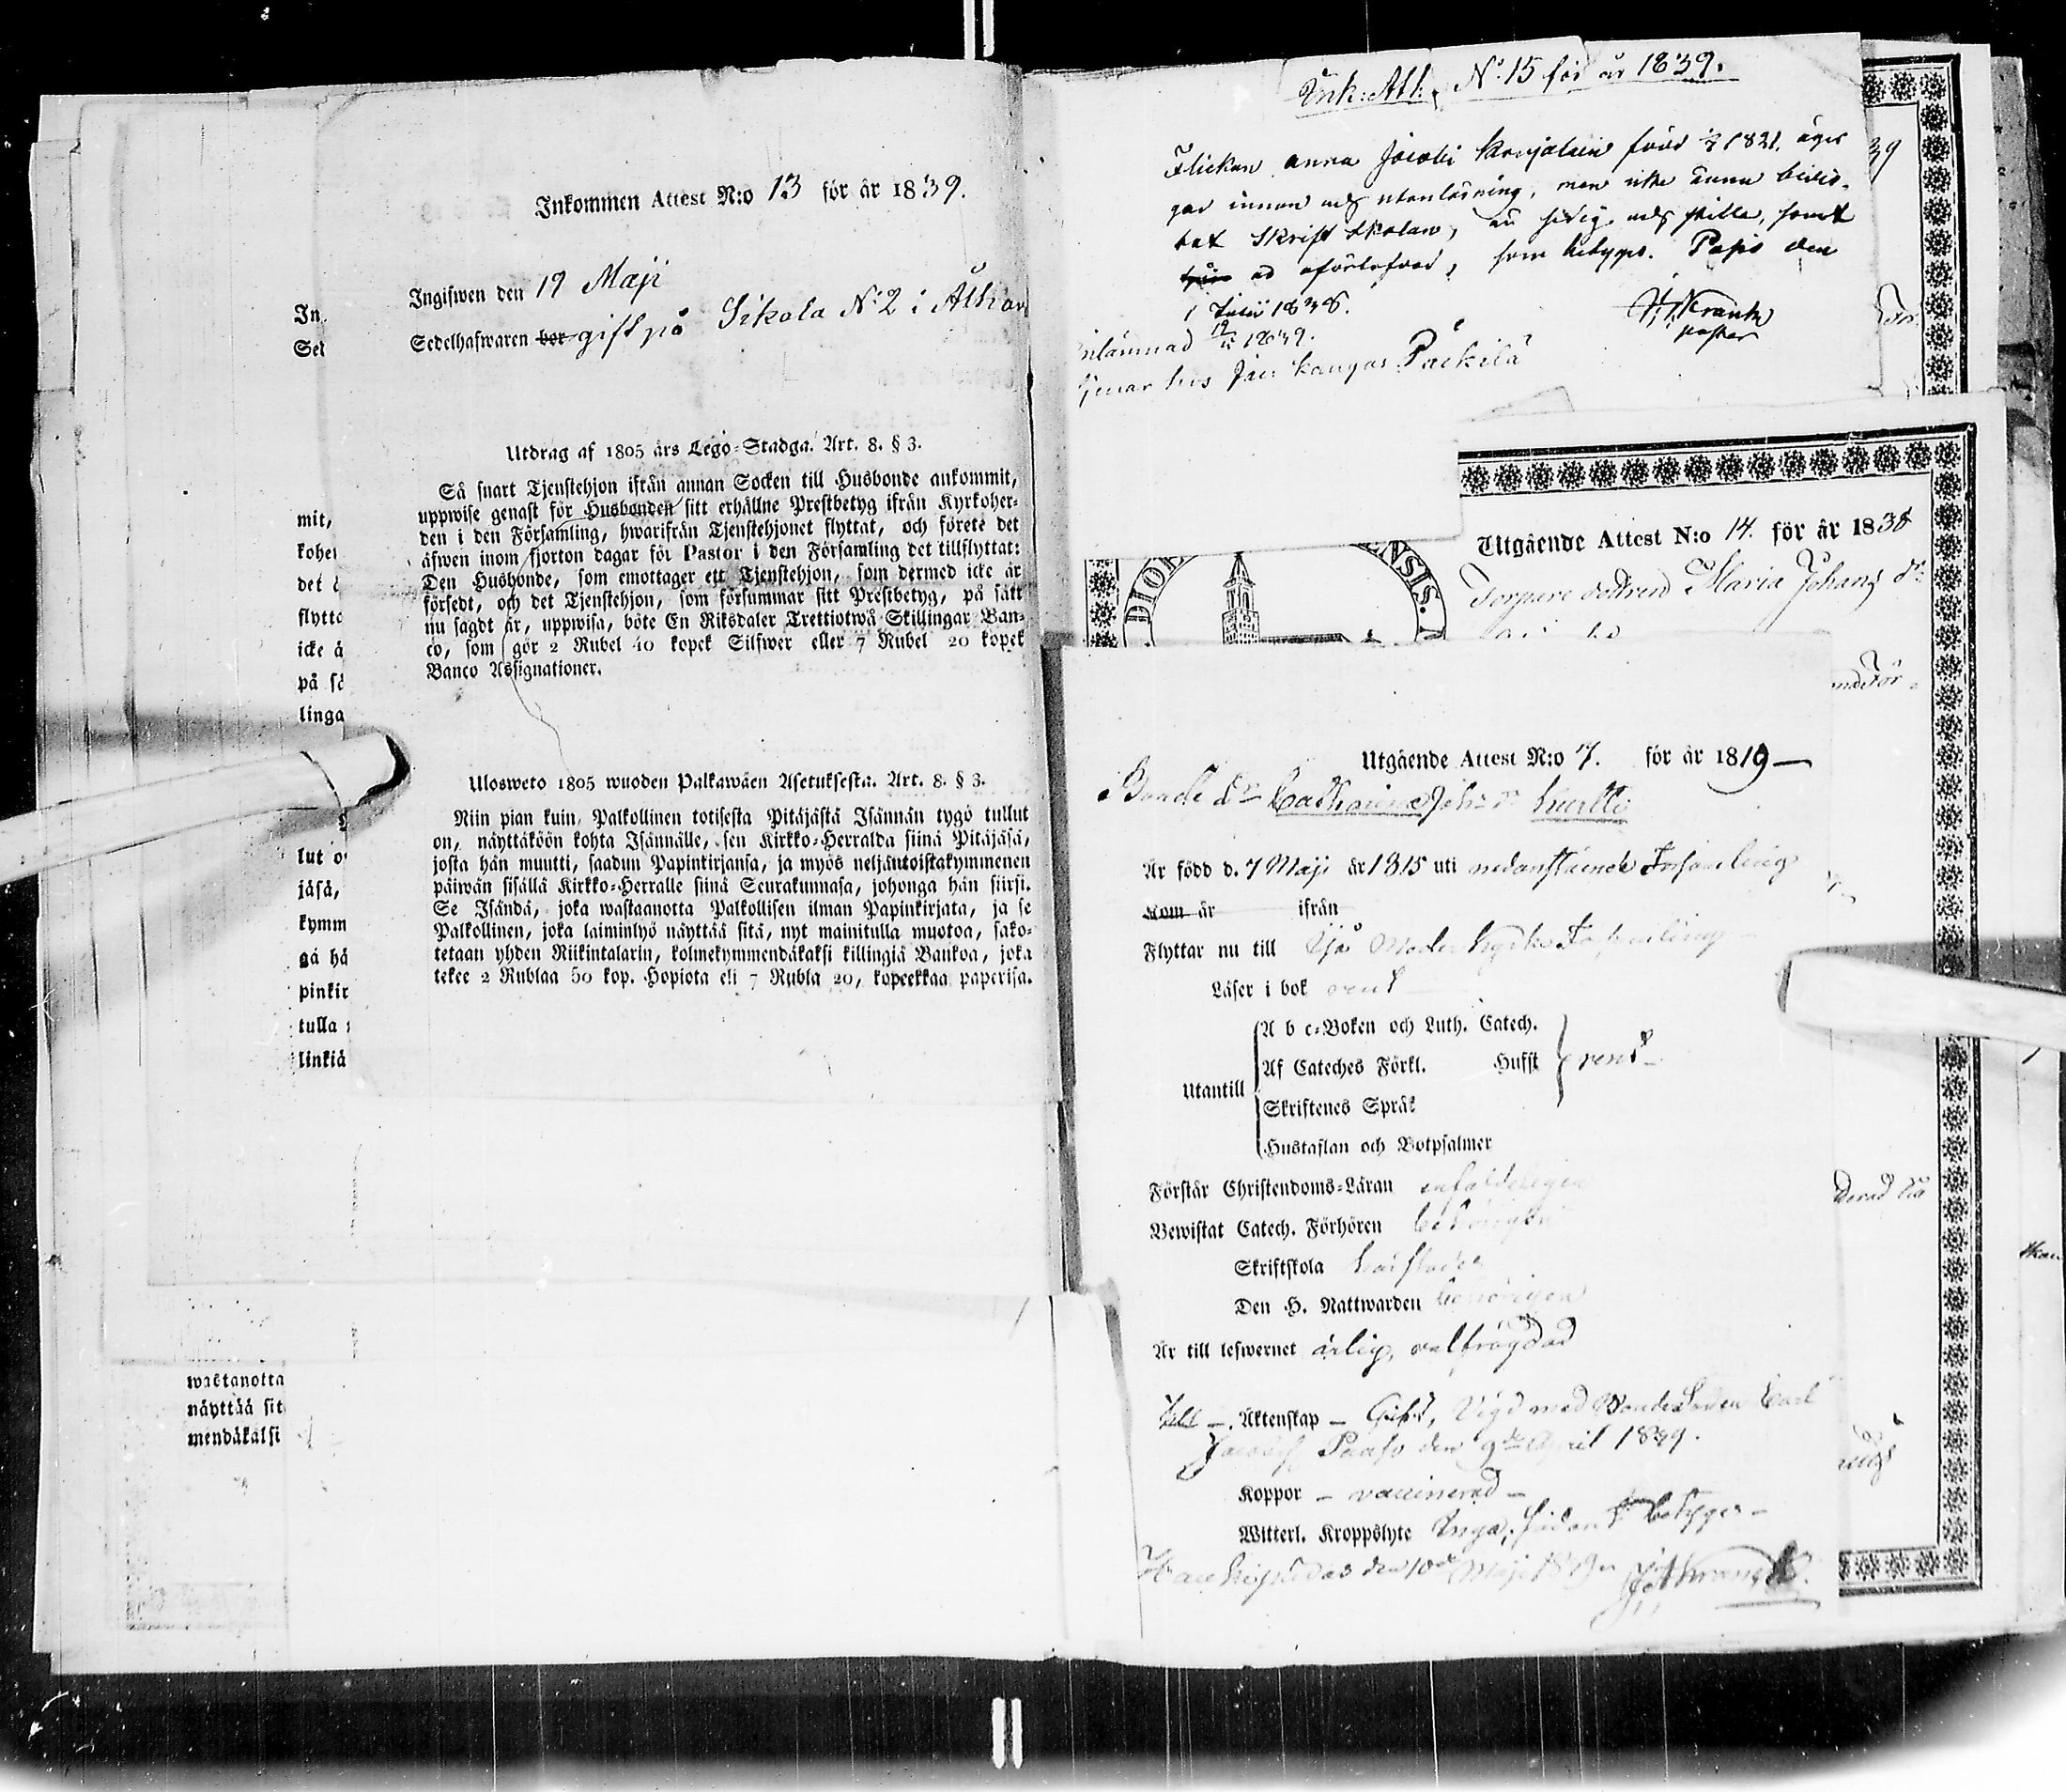 Inkommen Attest N:o 13 för år 1839.
Ingifwen den 19 Maji
Sedelhafwaren bor gift på Sikala N:2 i
In
Sed
Utdrag af 1805 års Lego-Stadga. Art. 8. § 3.
Så snart Tjenstehjon ifrån annan Socken till Husbonde ankommit,
uppwise genast för Husbonden sitt erhållne Prestbetyg ifrån Kyrkoher-
den i den Församling, hwarifrån Tjenstehjonet flyttat, och förete det
äfwen inom fjorton dagar för Pastor i den Församling det tillflyttat:
Den Husbonde, som emottager ett Tjenstehjon, som dermed icke är
försedt, och det Tjenstehjon, som försummar sitt Prestbetyg, på sätt
nu sagdt är, uppwisa, böte En Riksdaler Trettiotwå Skillingar Ban-
co, som gör 2 Rubel 40 kopek Silfwer eller 7 Rubel 20 kopek
Banco Assignationer.
mit,
kohe
det
flytt
icke ä
på sä
linga
Ulosweto 1805 wuoden Palkawäen Asetuksesta. Art. 8. § 3.
Niin pian kuin Palkollinen totisesta Pitäjästä Isännän tygö tullut
on, näyttäköön kohta Isännälle, sen Kirkko-Herralda siinä Pitäjäsä,
josta hän muutti, saadun Papinkirjansa, ja myös neljäntoistakymmenen
päiwän sisällä Kirkko-Herralle siinä Seurakunnasa, johonga hän siirsi.
Se Isändä, joka wastaanotta Palkollisen ilman Papinkirjata, ja se
Palkollinen, joka laiminlyö näyttää sitä, nyt mainitulla muotoa, sako-
tetaan yhden Riikintalarin, kolmekymmendäkaksi killingiä Bankoa, joka
tekee 2 Rublaa 50 kop. Hopiota eli 7 Rubla 20, kopeekkaa paperisa.
lut o
jäsä,
kymm
gä hä
pinkir
tulla
linkiä
wastanotta
näyttää sit
mendäkalsi
Ink: Att. N:15 för år 1839.
Flickan Anna Jacobi Karjalain född 1821. äger
innan och utanläsning, men icke ännu
Skrift skolan, är sedig och stilla, samt
oförlofvad, som betygas. Pojo den
1 Junii 1838.
Krank
Pastor
19 1839.
hos Kangas Päckilä
DIOE
ENSIS.
Utgående Attest N:o 14. för år 1838
Torpare dottren Maria Johans dr
Utgående Attest N:o 7. för år 1819 —
Bonde dr Catharina Joh: dr Kurtti
Är född d. 7 Maji år 1815 uti nedanstående Församling
Kom är ifrån
Flyttar nu till Ijo Moder kyrko Församling —
Läser i bok rent
Utantill
A b c-Boken och Luth. Catech.
Af Cateches Förkl. Hufst rent —
Skriftenes Språk
Hustaflan och Botpsalmer
Förstår Christendoms-Läran enfaldeligen
Bewistat Catech. Förhören behörigen
Skriftskola
Den H. Nattwarden behörigen
Är till lefwernet ärlig, välfrägdad
Till — Äktenskap — Gift, Vigd med Bondesonen Carl
Jacobss. Paaso den 9de April 1839.
Koppor — vaccinerad —
Witterl. Kroppslyte Inga, betygar —
Haukipudas den 10de Maji 1839